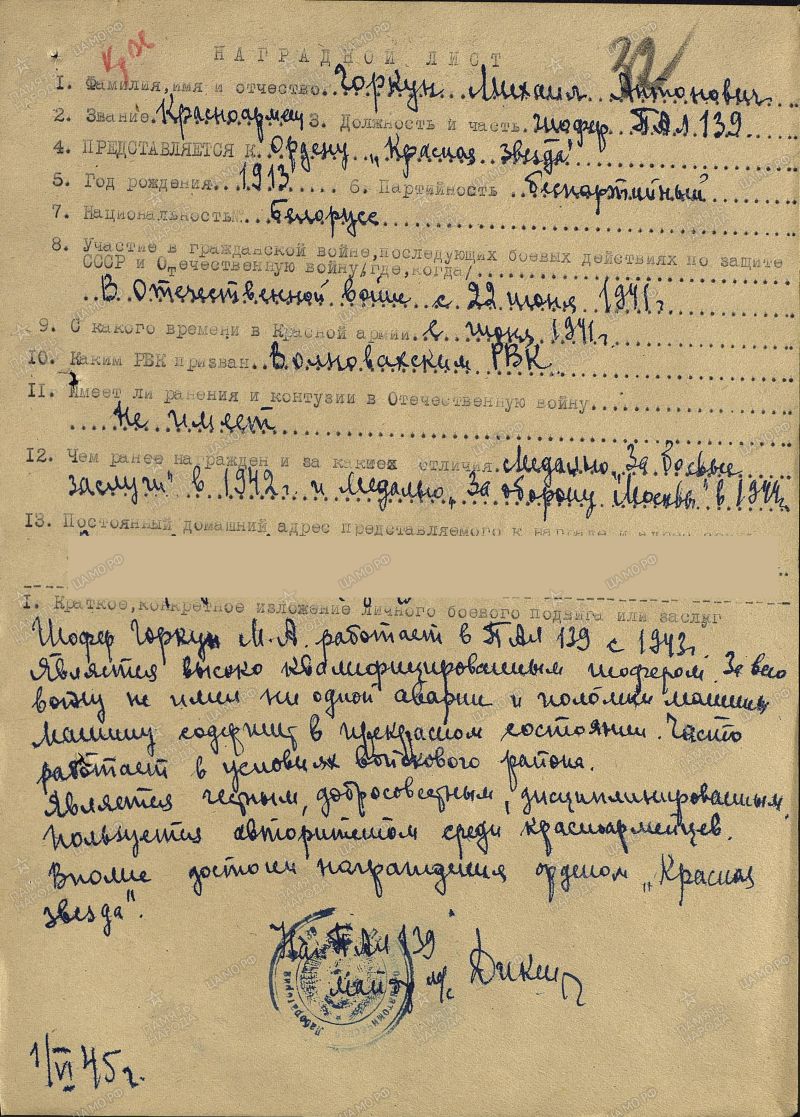 Кр Зв
32
НАГРАДНОЙ ЛИСТ
1. Фамилия,имя и отчество..Горкун Михаил Антонович
2. Звание.Красноармеец 3. Должность и часть.шофер ПАЛ 139
4. ПРЕДСТАВЛЯЕТСЯ к.Ордену „Красная звезда"
5. Год рождения..1913..... 6. Партийность ..беспартийный
7. Национальность..Белорусс
8. Участие в гражданской войне,последующих боевых действиях по защите
СССР и Отечественную войну/где,когда/
В Отечественной войне с 22 июня 1941г
9. С какого времени в Красной армии..с июня 1941г.
10. Каким РВК призван..Волновахским РВК
11. Имеет ли ранения и контузии в Отечественную войну
Не имеет
12. Чем ранее награжден и за какиех отличия.Медалью „За боевые
заслуги" в 1942г. и медалью „За оборону Москвы" в 1944г.
13. Постоянный домашний адрес представляемого к награде и адрес
1. Краткое,конкретное изложение личного боевого подвига или заслуг
Шофер Горкун М.А. работает в ПАЛ 139 с 1943г.
Является высоко квалифицированным шофером. За всю
войну не имел ни одной аварии и поломки машины
машину содержит в прекрасном состоянии. Часто
работает в условиях войскового района.
Является честным, добросовестным, дисциплинированным.
Пользуется авторитетом среди красноармейцев.
Вполне достоин награждения орденом „Красная
звезда".
Нач ПАЛ 139
майор м/с
1/VI 45г.
ПАМЯТЬ НАРОДА
ЦАМО.РФ